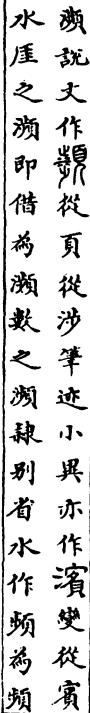 瀕說文作顰從頁從涉筆迹小異亦作濱變從賓
水厓之瀕即借為瀕數之瀕隸别省水作頻為頻